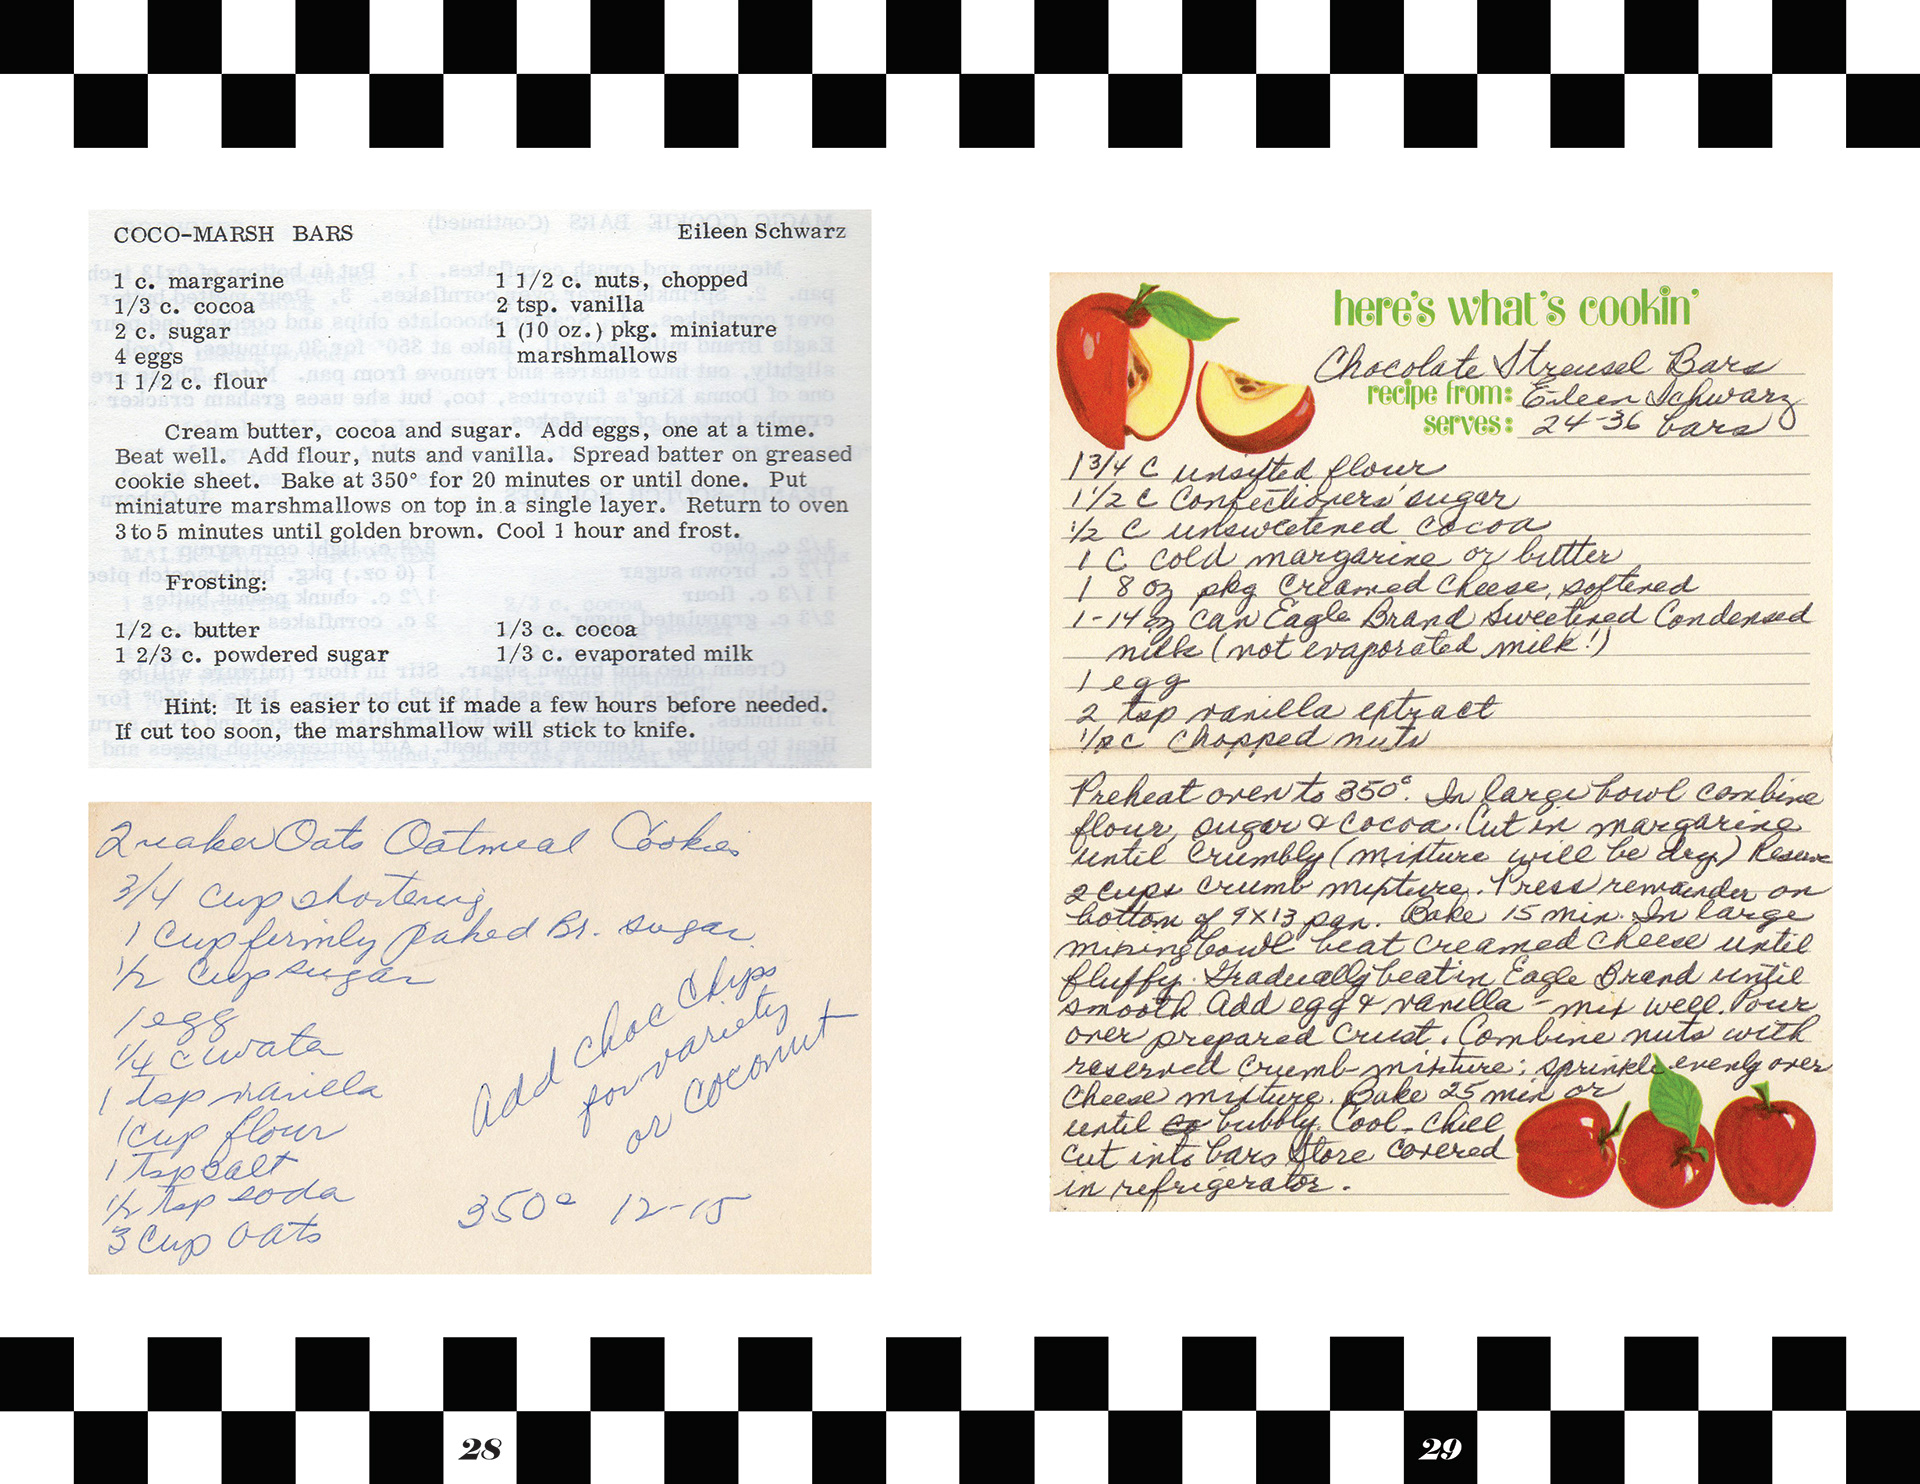 COCO-MARSH BARS Eileen Schwarz
1 c. margarine
1/3 c. cocoa
2 c. sugar
4 eggs
1 1/2 c. flour
1 1/2 c. nuts, chopped
2 tsp. vanilla
1 (10 oz.) pkg. miniature
marshmallows
Cream butter, cocoa and sugar. Add eggs, one at a time.
Beat well. Add flour, nuts and vanilla. Spread batter on greased
cookie sheet. Bake at 350° for 20 minutes or until done. Put
miniature marshmallows on top in a single layer. Return to oven
3 to 5 minutes until golden brown. Cool 1 hour and frost.
Frosting:
1/2 c. butter
1 2/3 c. powdered sugar
1/3 c. cocoa
1/3 c. evaporated milk
Hint: It is easier to cut if made a few hours before needed.
If cut too soon, the marshmallow will stick to knife.
Quaker Oats Oatmeal Cookies
3/4 cup shortening
1 cup firmly paked Br. sugar
1/2 cup sugar
1 egg
1/4 c water
1 tsp vanilla
1 cup flour
1 tsp salt
1/2 tsp soda
3 cup oats
Add choc chips
for variety
or coconut
350° 12-15
28
here's what's cookin'
Chocolate Streusel Bars
recipe from: Eileen Schwarz
serves: 24-36 bars
1 3/4 C unsifted flour
1 1/2 C Confectioners' sugar
1/2 C unsweetened cocoa
1 C cold margarine or butter
1 8 oz pkg creamed cheese, softened
1-14 oz can Eagle Brand Sweetened Condensed
milk (not evaporated milk!)
1 egg
2 tsp vanilla extract
1/2 c chopped nuts
Preheat oven to 350°. In large bowl combine
flour, sugar & cocoa. Cut in margarine
until crumbly (mixture will be dry.) Reserve
2 cups crumb mixture. Press remainder on
bottom of 9x13 pan. Bake 15 min. In large
mixing bowl beat creamed cheese until
fluffy. Gradually beat in Eagle Brand until
smooth. Add egg & vanilla - mix well. Pour
over prepared crust. Combine nuts with
reserved crumb mixture; sprinkle evenly over
cheese mixture. Bake 25 min or
until bubbly. Cool - chill
cut into bars Store covered
in refrigerator.
29